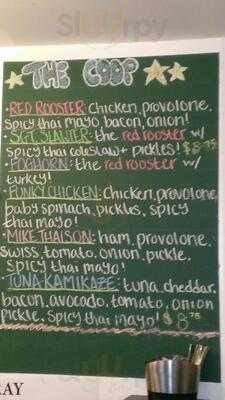 Sluurpy
THE COOP
• RED ROOSTER: chicken, provolone,
spicy thai mayo, bacon, onion!
• SGT. SLAWTER: the red rooster w/
spicy thai coleslaw + pickles! $8.75
• FOGHORN: the red rooster w/
turkey!
• FUNKY CHICKEN: chicken, provolone,
baby spinach, pickles, spicy
thai mayo!
• MIKE THAISON: ham, provolone,
swiss, tomato, onion, pickle,
spicy thai mayo!
• TUNA KAMIKAZE: tuna, cheddar,
bacon, avocado, tomato, onion
pickle, spicy thai mayo! $8.75
RAY